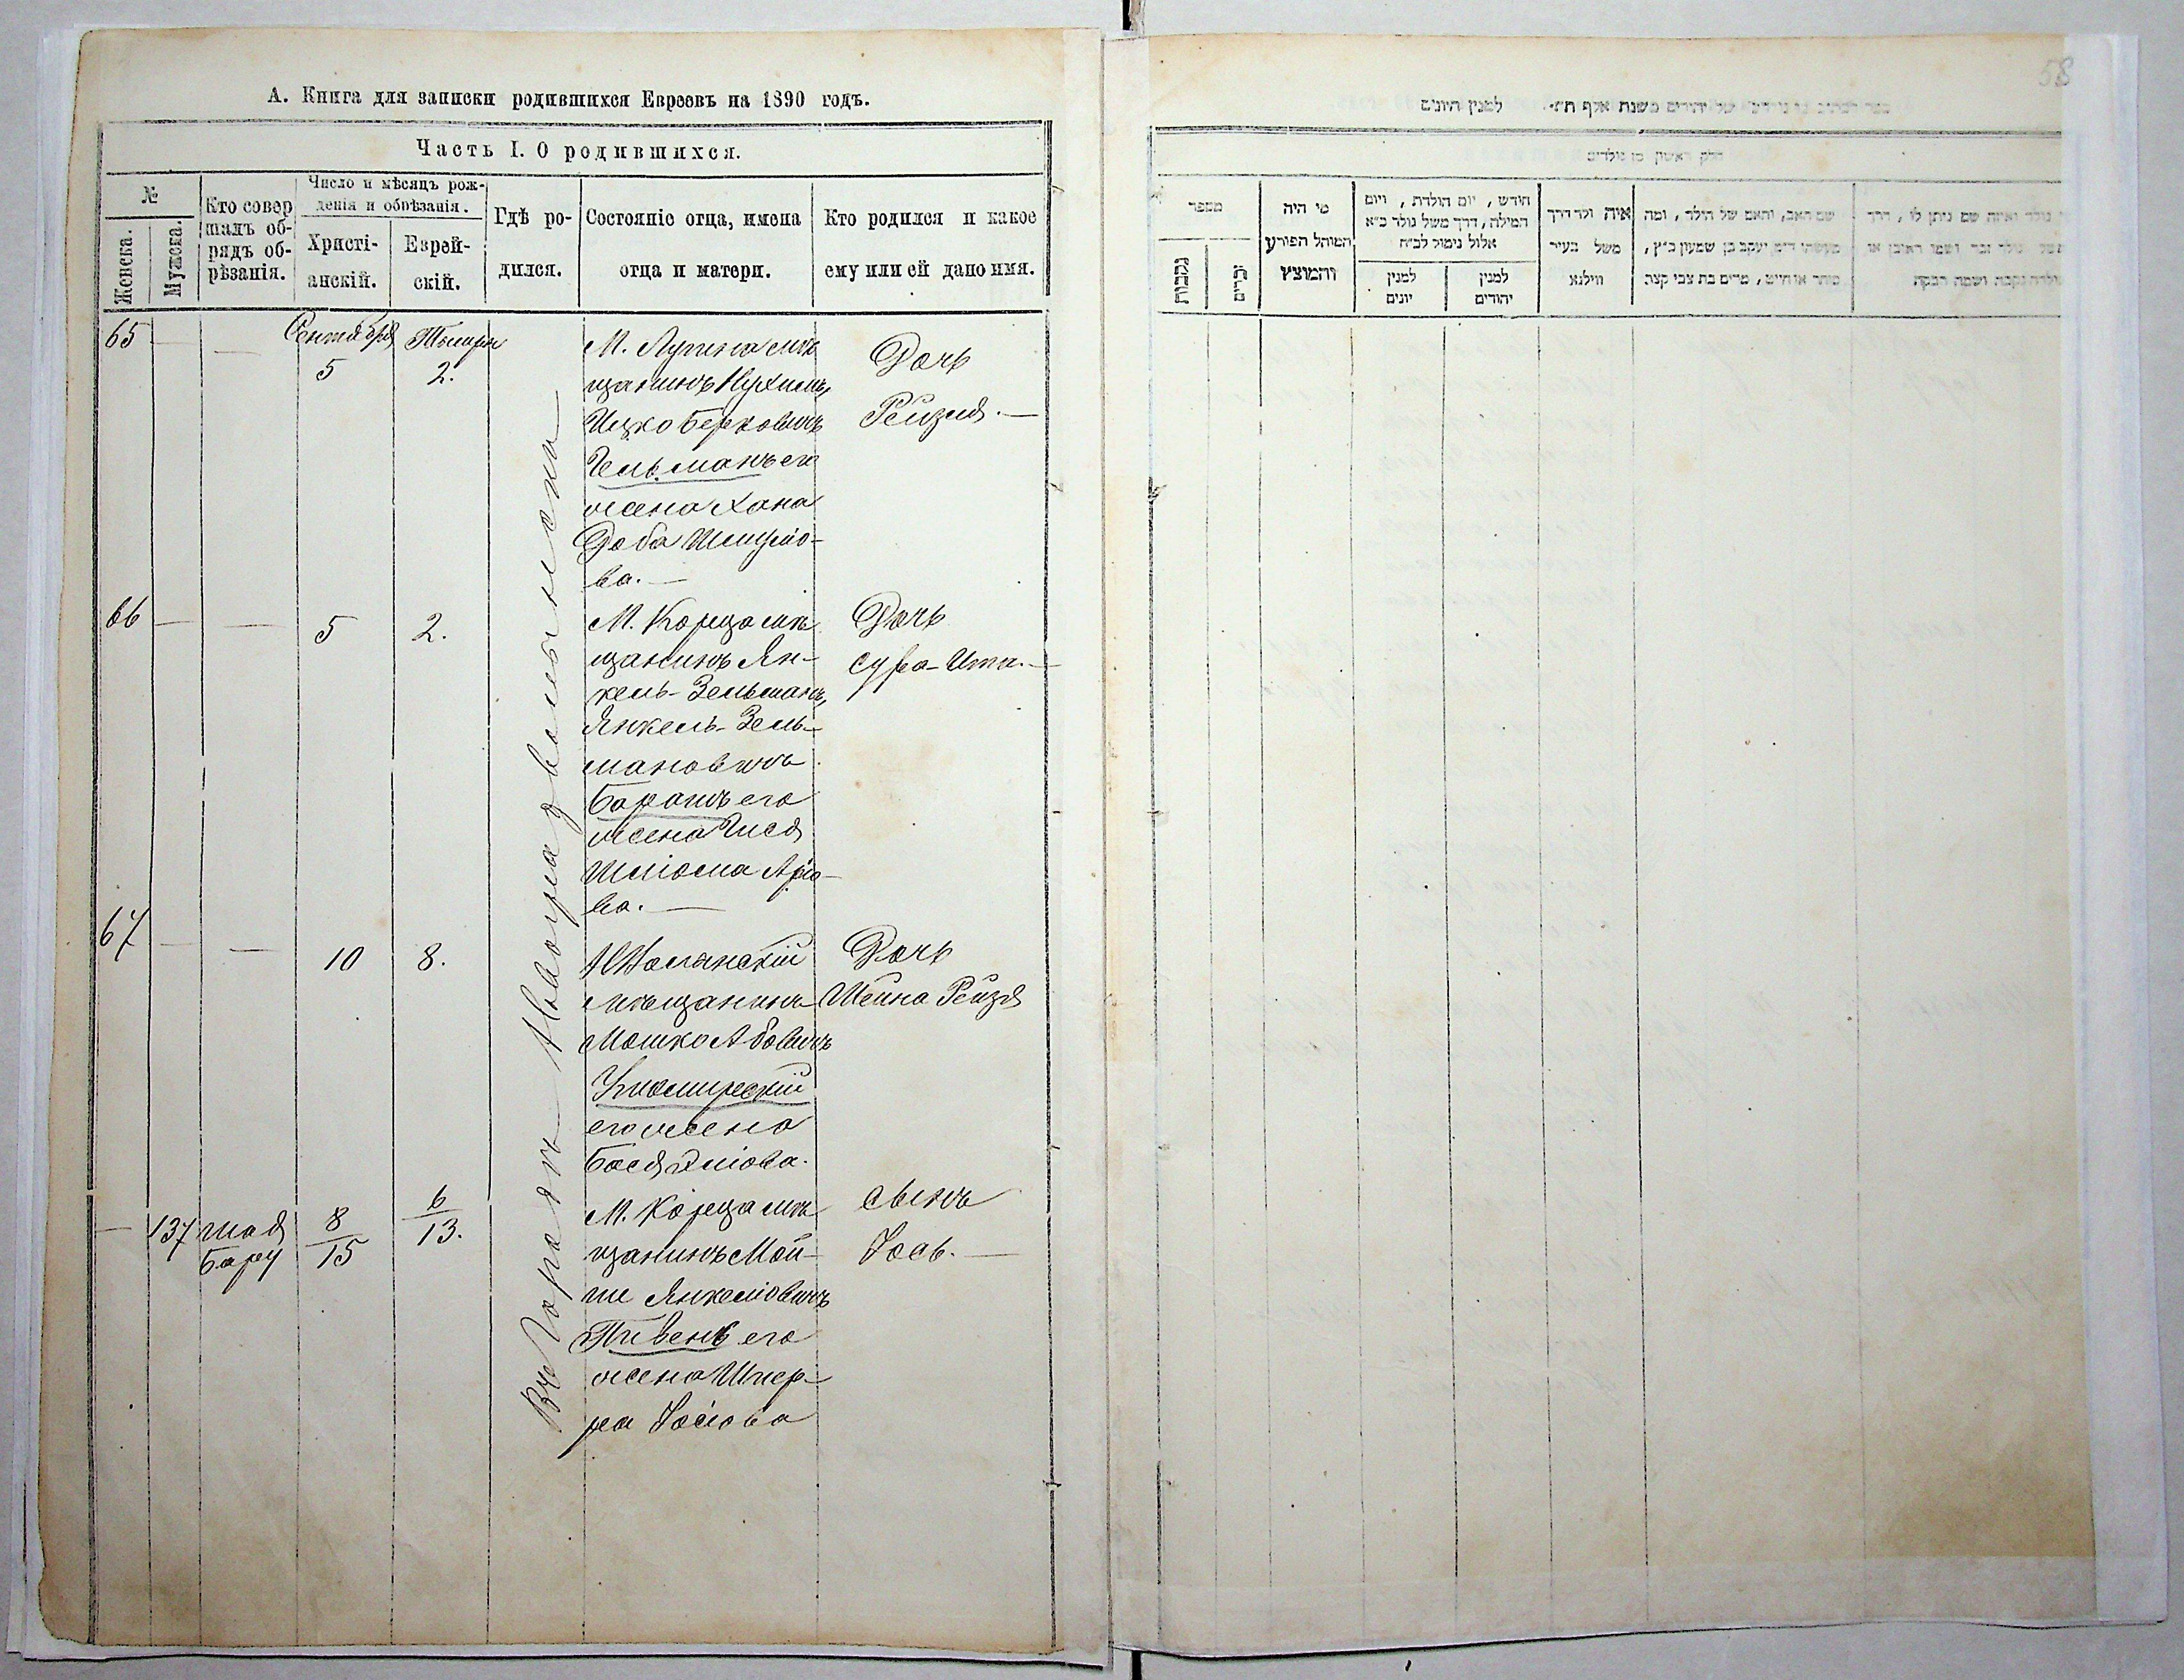 А. Книга для записки родившихся Евреевъ на 1890 годъ.
Часть I. О родившихся.
№
Женска.
Мужска.
Кто совер
шалъ об-
рядъ об-
рѣзанія.
Число и мѣсяцъ рож-
денія и обрѣзанія.
Христі-
анскій.
Еврей-
скій.
Гдѣ ро-
дился.
Состояніе отца, имена
отца и матери.
Кто родился и какое
ему или ей дано имя.
65 — — Сентября 5 Тишри 2.
Въ Городѣ Новоградволынскѣ
М. мѣ
щанинъ Нухимъ
Ицко Берковичъ
Гельманъ его
жена Хана
Доба Шмуліо-
ва. —
Дочь
Рейзля. —
66 — — 5 2.
М. Корца мѣ
щанинъ Ян-
кель-Зельманъ,
Янкель-Зель-
мановичъ
Баранъ его
жена Гися
Шліома Аріо-
ва. —
Дочь
Сура-Ита. —
67 — — 10 8.
мѣщанинъ
Мошко Абовичъ
его жена
Бася Эліова.
Дочь
Шейна Рейзя
— 137 8/15 6/13.
М. Корца мѣ
щанинъ Мой-
ше Янкеліовичъ
Пивень его
жена Шпер-
ра Іосіова
Сынъ
Іось. —
58
למנין היונים
חלק ראשון מן נולדים
מספר
נקבות
זכרים
מי היה
המוהל הפורע
והמוצץ
חודש, יום הולדת, ויום
המילה, דרך משל נולד כ״א
אלול נימול לכ״ח
למנין
יונים
למנין
יהודים
איה ולד דרך
משל בעיר
ווילנא
שם האב, והאם של הילד, ומה
מעשהו יעקב בן שמעון כ״ץ,
סוחר מרים בת צבי קצה
נולד ואיזה שם ניתן לו, דרך
נולד זכר ושמו ראובן או
נולדה נקבה ושמה רבקה